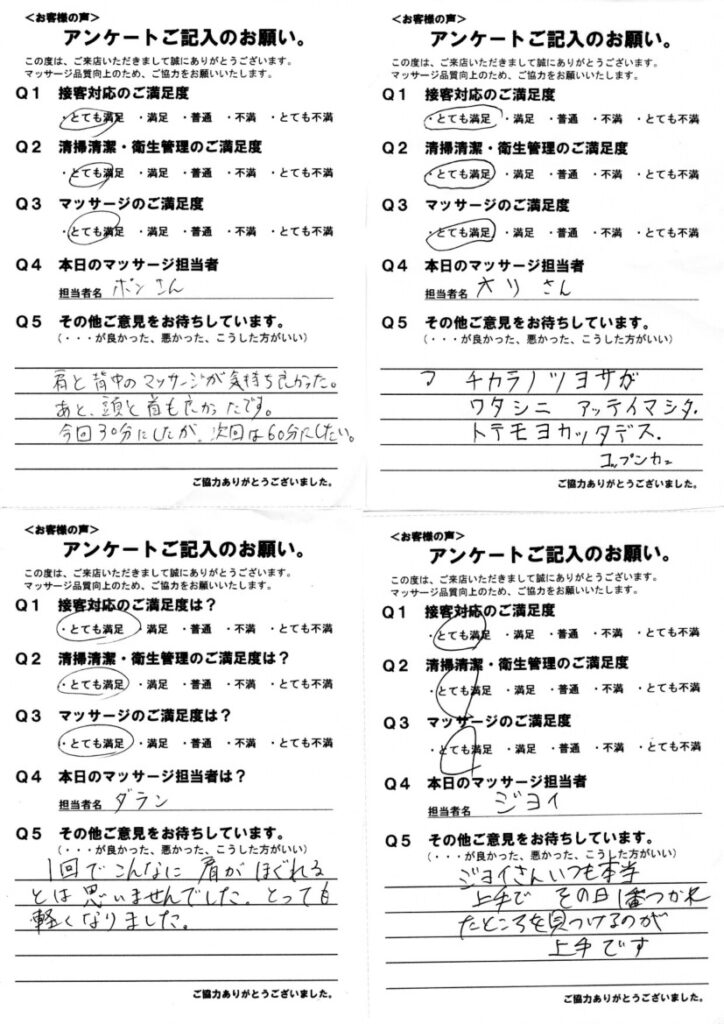 <お客様の声>
アンケートご記入のお願い。
この度は、ご来店いただきまして誠にありがとうございます。
マッサージ品質向上のため、ご協力をお願いいたします。
Q1 接客対応のご満足度
・とても満足 ・満足 ・普通 ・不満 ・とても不満
Q2 清掃清潔・衛生管理のご満足度
・とても満足 ・満足 ・普通 ・不満 ・とても不満
Q3 マッサージのご満足度
・とても満足 ・満足 ・普通 ・不満 ・とても不満
Q4 本日のマッサージ担当者
担当者名 ポンさん
Q5 その他ご意見をお待ちしています。
(・・・が良かった、悪かった、こうした方がいい)
肩と背中のマッサージが気持ち良かった。
あと、頭と首も良かったです。
今回30分にしたが、次回は60分にしたい。
ご協力ありがとうございました。
<お客様の声>
アンケートご記入のお願い。
この度は、ご来店いただきまして誠にありがとうございます。
マッサージ品質向上のため、ご協力をお願いいたします。
Q1 接客対応のご満足度
・とても満足 ・満足 ・普通 ・不満 ・とても不満
Q2 清掃清潔・衛生管理のご満足度
・とても満足 ・満足 ・普通 ・不満 ・とても不満
Q3 マッサージのご満足度
・とても満足 ・満足 ・普通 ・不満 ・とても不満
Q4 本日のマッサージ担当者
担当者名 さん
Q5 その他ご意見をお待ちしています。
(・・・が良かった、悪かった、こうした方がいい)
チカラノツヨサガ
ワタシニ アッテイマシタ.
トテモヨカッタデス.
コップンカー
ご協力ありがとうございました。
<お客様の声>
アンケートご記入のお願い。
この度は、ご来店いただきまして誠にありがとうございます。
マッサージ品質向上のため、ご協力をお願いいたします。
Q1 接客対応のご満足度は?
・とても満足 ・満足 ・普通 ・不満 ・とても不満
Q2 清掃清潔・衛生管理のご満足度は?
・とても満足 ・満足 ・普通 ・不満 ・とても不満
Q3 マッサージのご満足度は?
・とても満足 ・満足 ・普通 ・不満 ・とても不満
Q4 本日のマッサージ担当者は?
担当者名 ダラン
Q5 その他ご意見をお待ちしています。
(・・・が良かった、悪かった、こうした方がいい)
1回でこんなに肩がほぐれる
とは思いませんでした。とっても
軽くなりました。
ご協力ありがとうございました。
<お客様の声>
アンケートご記入のお願い。
この度は、ご来店いただきまして誠にありがとうございます。
マッサージ品質向上のため、ご協力をお願いいたします。
Q1 接客対応のご満足度
・とても満足 ・満足 ・普通 ・不満 ・とても不満
Q2 清掃清潔・衛生管理のご満足度
・とても満足 ・満足 ・普通 ・不満 ・とても不満
Q3 マッサージのご満足度
・とても満足 ・満足 ・普通 ・不満 ・とても不満
Q4 本日のマッサージ担当者
担当者名 ジョイ
Q5 その他ご意見をお待ちしています。
(・・・が良かった、悪かった、こうした方がいい)
ジョイさんいつも本当
上手で その日1番つかれ
たところを見つけるのが
上手です
ご協力ありがとうございました。